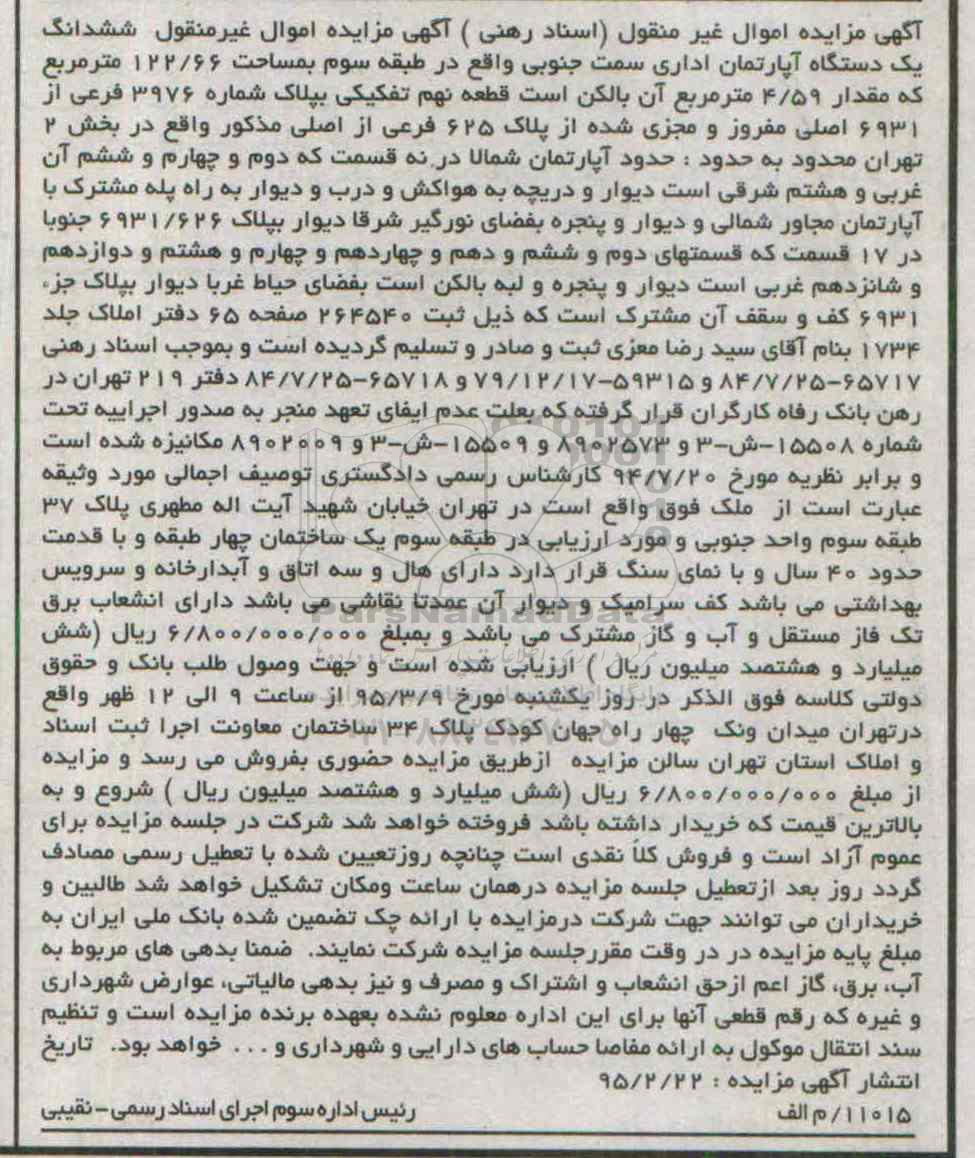 آگهی مزایده اموال غیر منقول (اسناد رهنی ) آگهی مزایده اموال غیرمنقول ششدانگ
یک دستگاه آپارتمان اداری سمت جنوبی واقع در طبقه سوم بمساحت ۱۲۲/۶۶ مترمربع
که مقدار ۴/۵۹ مترمربع آن بالکن است قطعه نهم تفکیکی بپلاک شماره ۳۹۷۶ فرعی از
۶۹۳۱ اصلی مفروز و مجزی شده از پلاک ۶۲۵ فرعی از اصلی مذکور واقع در بخش ۲
تهران محدود به حدود : حدود آپارتمان شمالا در نه قسمت که دوم و چهارم و ششم آن
غربی و هشتم شرقی است دیوار و دریچه به هواکش و درب و دیوار به راه پله مشترک با
آپارتمان مجاور شمالی و دیوار و پنجره بفضای نورگیر شرقا دیوار بپلاک ۶۹۳۱/۶۲۶ جنوبا
در ۱۷ قسمت که قسمتهای دوم و ششم و دهم و چهاردهم و چهارم و هشتم و دوازدهم
و شانزدهم غربی است دیوار و پنجره و لبه بالکن است بفضای حیاط غربا دیوار بپلاک جزء
۶۹۳۱ کف و سقف آن مشترک است که ذیل ثبت ۲۶۴۵۴۰ صفحه ۶۵ دفتر املاک جلد
۱۷۳۴ بنام آقای سید رضا معزی ثبت و صادر و تسلیم گردیده است و بموجب اسناد رهنی
۶۵۷۱۷-۸۴/۷/۲۵ و ۵۹۳۱۵-۷۹/۱۲/۱۷ و ۶۵۷۱۸-۸۴/۷/۲۵ دفتر ۲۱۹ تهران در
رهن بانک رفاه کارگران قرار گرفته که بعلت عدم ایفای تعهد منجر به صدور اجراییه تحت
شماره ۱۵۵۰۸-ش-۳ و ۸۹۰۲۵۷۳ و ۱۵۵۰۹-ش-۳ و ۸۹۰۲۰۰۹ مکانیزه شده است
و برابر نظریه مورخ ۹۴/۷/۲۰ کارشناس رسمی دادگستری توصیف اجمالی مورد وثیقه
عبارت است از ملک فوق واقع است در تهران خیابان شهید آیت اله مطهری پلاک ۳۷
طبقه سوم واحد جنوبی و مورد ارزیابی در طبقه سوم یک ساختمان چهار طبقه و با قدمت
حدود ۴۰ سال و با نمای سنگ قرار دارد دارای هال و سه اتاق و آبدارخانه و سرویس
بهداشتی می باشد کف سرامیک و دیوار آن عمدتا نقاشی می باشد دارای انشعاب برق
تک فاز مستقل و آب و گاز مشترک می باشد و بمبلغ ۶/۸۰۰/۰۰۰/۰۰۰ ریال (شش
میلیارد و هشتصد میلیون ریال ) ارزیابی شده است و جهت وصول طلب بانک و حقوق
دولتی کلاسه فوق الذکر در روز یکشنبه مورخ ۹۵/۳/۹ از ساعت ۹ الی ۱۲ ظهر واقع
درتهران میدان ونک چهار راه جهان کودک پلاک ۳۴ ساختمان معاونت اجرا ثبت اسناد
و املاک استان تهران سالن مزایده ازطریق مزایده حضوری بفروش می رسد و مزایده
از مبلغ ۶/۸۰۰/۰۰۰/۰۰۰ ریال (شش میلیارد و هشتصد میلیون ریال ) شروع و به
بالاترین قیمت که خریدار داشته باشد فروخته خواهد شد شرکت در جلسه مزایده برای
عموم آزاد است و فروش کلاً نقدی است چنانچه روزتعیین شده با تعطیل رسمی مصادف
گردد روز بعد ازتعطیل جلسه مزایده درهمان ساعت ومکان تشکیل خواهد شد طالبین و
خریداران می توانند جهت شرکت درمزایده با ارائه چک تضمین شده بانک ملی ایران به
مبلغ پایه مزایده در در وقت مقررجلسه مزایده شرکت نمایند. ضمنا بدهی های مربوط به
آب، برق، گاز اعم ازحق انشعاب و اشتراک و مصرف و نیز بدهی مالیاتی، عوارض شهرداری
و غیره که رقم قطعی آنها برای این اداره معلوم نشده بعهده برنده مزایده است و تنظیم
سند انتقال موکول به ارائه مفاصا حساب های دارایی و شهرداری و ... خواهد بود. تاریخ
انتشار آگهی مزایده : ۹۵/۲/۲۲
۱۱۰۱۵/ م الف رئیس اداره سوم اجرای اسناد رسمی-نقیبی
ParsNamadData